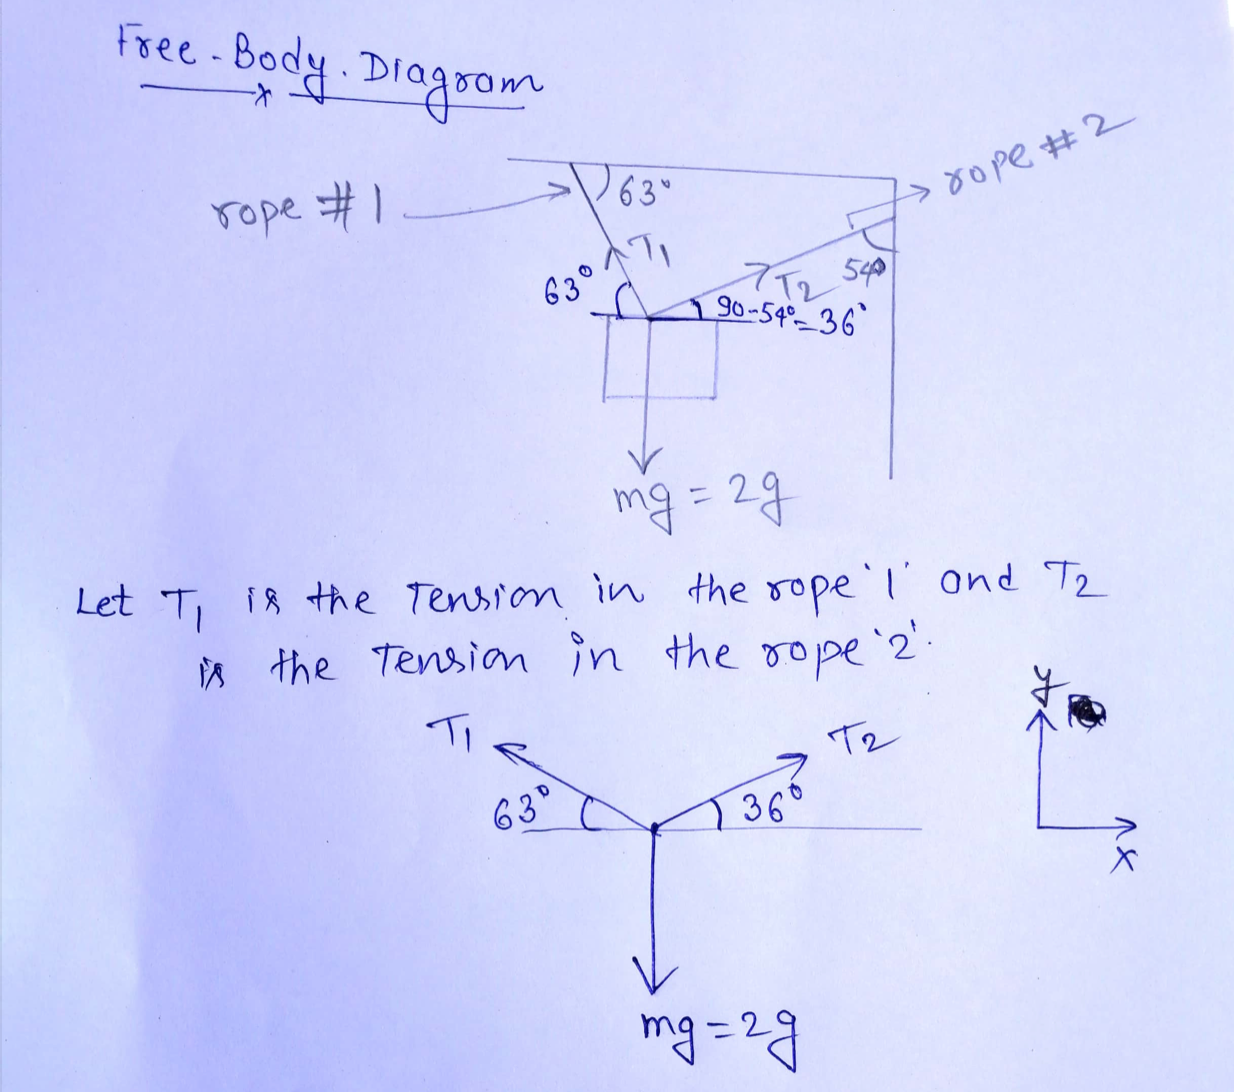 Free-Body. Diagram
rope #2
63°
rope #1
T₁
63°
T₂
54°
90-54°=36°
mg = 2g
Let T₁ is the Tension in the rope '1' and T₂
is the Tension in the rope '2'.
y
T₁
T₂
63°
36°
x
mg = 2g